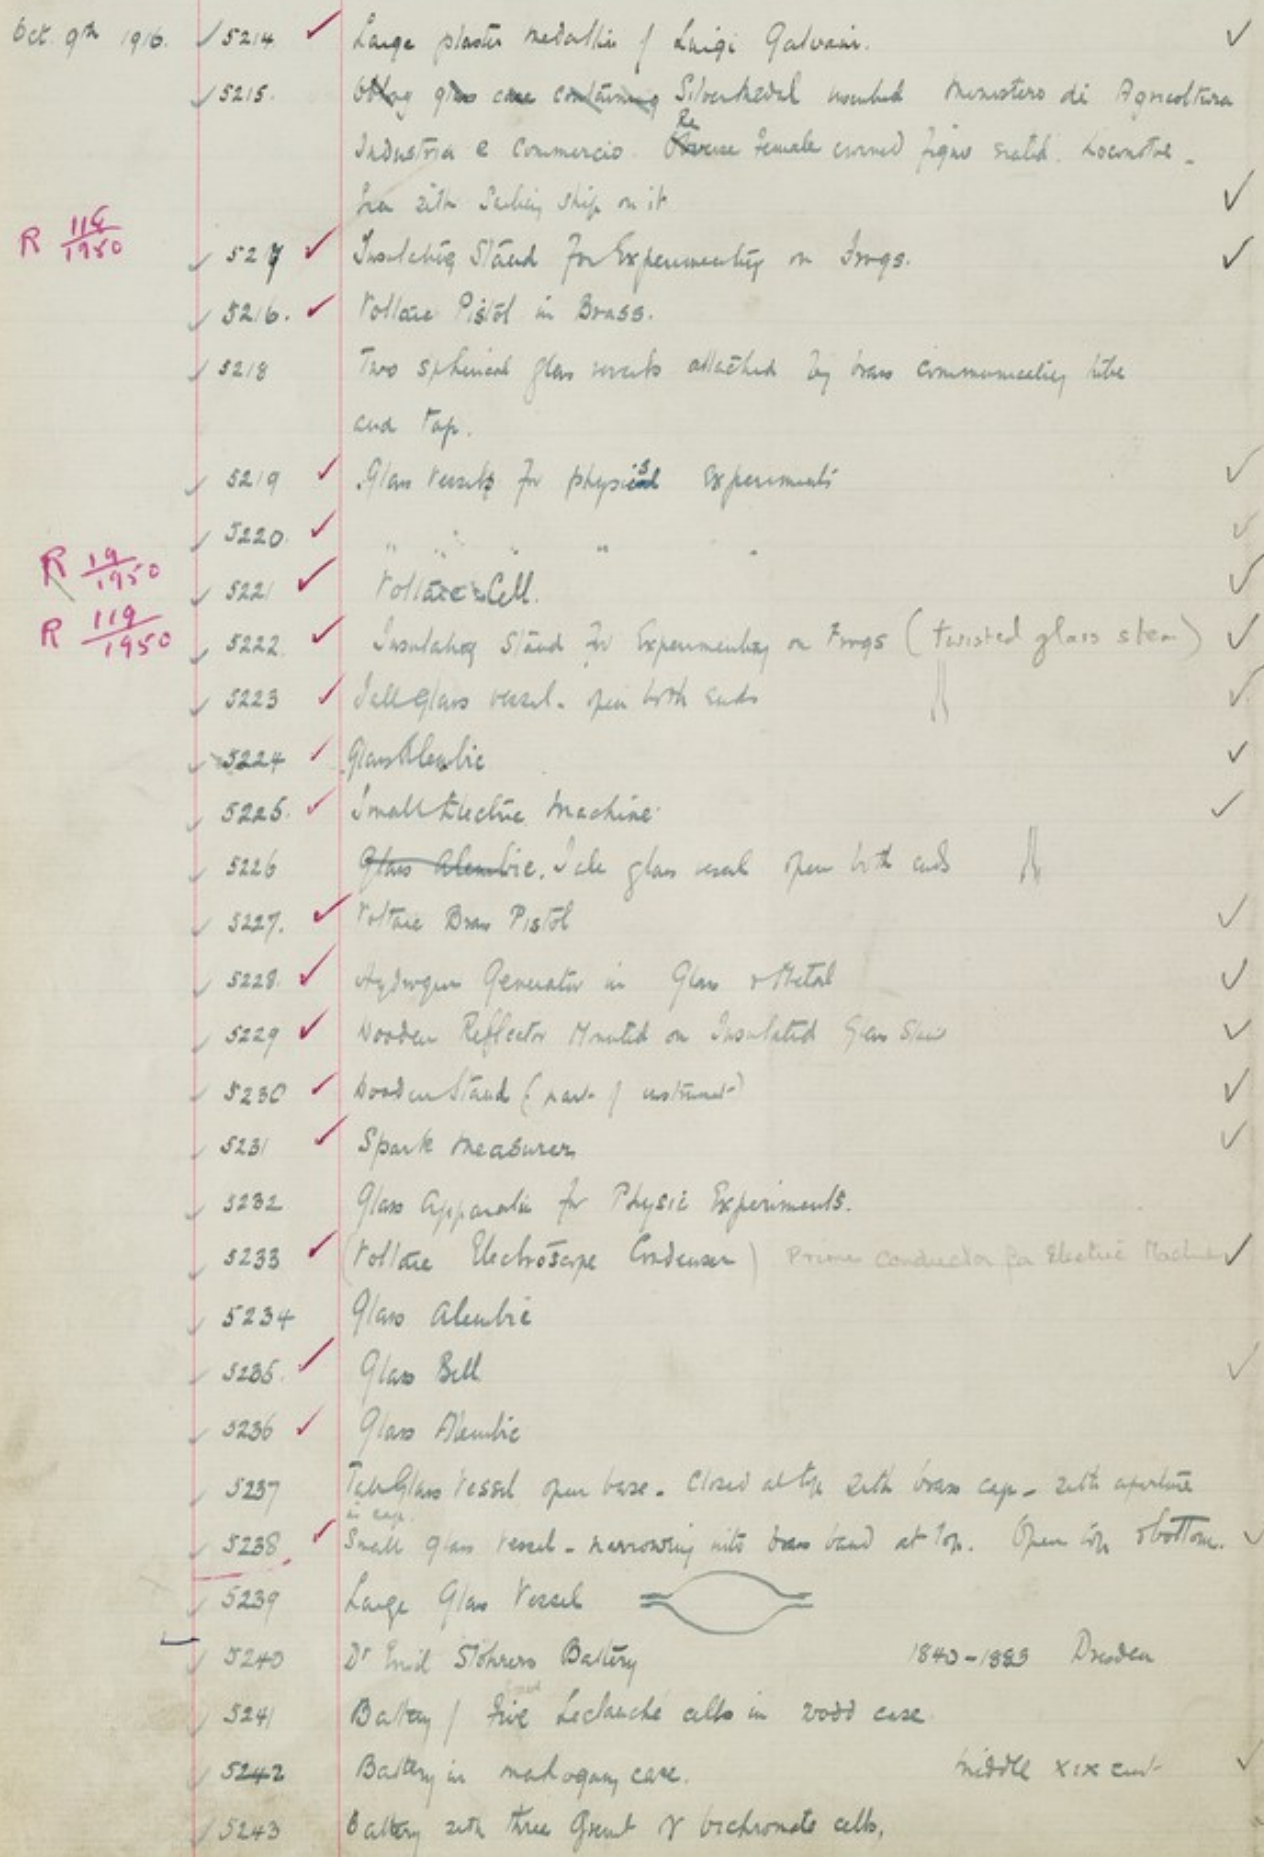 Oct. 9th 1916. 5214 Large plaster medallion of Luigi Galvani.
5215. Oblong glass case containing Silver Medal inscribed Ministero di Agricoltura
Industria e Commercio. Re Obverse Female crowned figure seated. Locomotive -
Sea with Sailing ship on it
R 116/1950 5217 Insulating Stand for Experimenting on Frogs.
5216. Voltaic Pistol in Brass.
5218 Two spherical glass vessels attached by brass communicating tube
and tap.
5219 Glass Vessels for physics experiments
5220. " " " " "
R 19/1950 5221 Voltaic Cell.
R 119/1950 5222. Insulating Stand for Experimenting on Frogs (twisted glass stem)
5223 Tall glass vessel - open both ends
5224 Glass Alembic
5225. Small Electric Machine
5226 Glass Alembic. Tall glass vessel open both ends
5227. Voltaic Brass Pistol
5228. Hydrogen Generator in Glass & Metal
5229 Wooden Reflector Mounted on Insulated Glass Stand
5230 Wooden Stand (part of instrument)
5231 Spark Measurer
5232 Glass Apparatus for Physic Experiments.
5233 (Voltaic Electroscope Condenser) Prime Conductor for Electric Machine
5234 Glass Alembic
5235. Glass Bell
5236 Glass Alembic
5237 Tall Glass Vessel open base - Closed at top with brass cap - with aperture
in cap.
5238 Small glass vessel - narrowing into brass band at top. Open top & bottom.
5239 Large Glass Vessel
5240 Dr Emil Stöhrers Battery 1840-1883 Dresden
5241 Battery of five Leclanché cells in wood case
5242 Battery in mahogany case. Middle XIX cent
5243 Battery with three Grenet or bichromate cells,